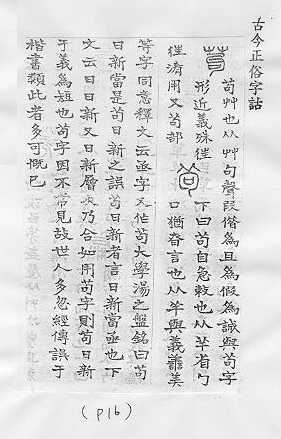 古今正俗字詁
苟艸也从艸句聲段借為且為假為誠與茍字
形近義殊徃
徃淆用又茍部
茍下曰茍自急敕也从羊省勹
口猶眘言也从羊與義譱美
等字同意釋文云亟字又作茍大學湯之盤銘曰苟
日新當是茍日新之誤茍日新者言日新當亟也下
文云日日新又日新層次乃合如用苟字則苟日新
于義為短也茍字因不常見故世人多忽經傳誤于
楷書類此者多可慨已
(P16)